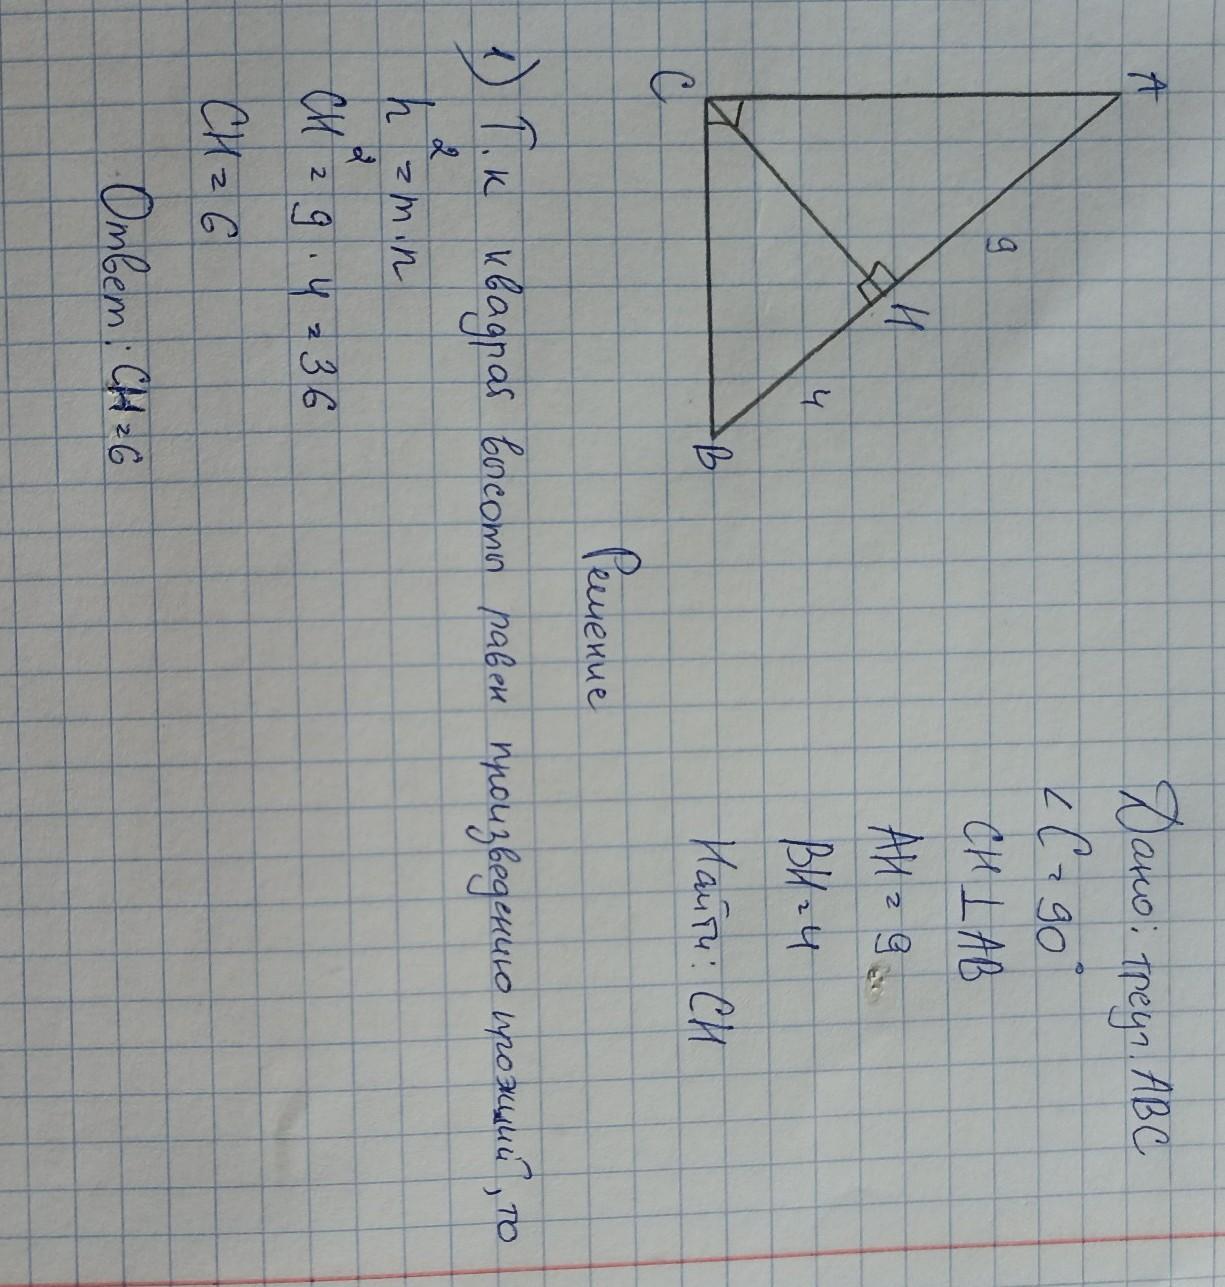 A
9
H
4
C
B
Дано: треуг. ABC
∠C = 90°
CH ⊥ AB
AH = 9
BH = 4
Найти: CH
Решение
1) Т.к квадрат высоты равен произведению проэкций, то
h² = m · n
CH² = 9 · 4 = 36
CH = 6
Ответ: CH = 6